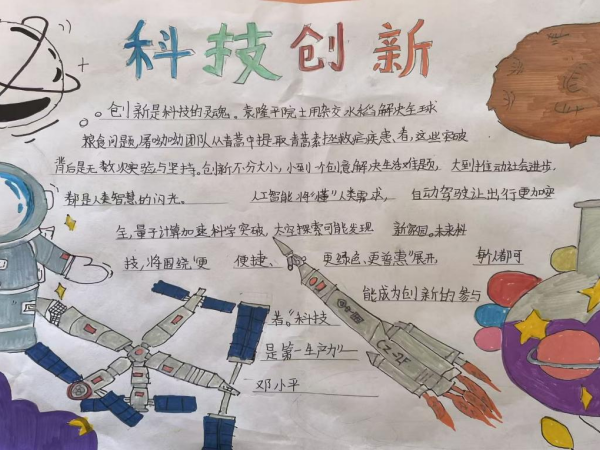 科技创新
创新是科技的灵魂。袁隆平院士用杂交水稻解决全球
粮食问题,屠呦呦团队从青蒿中提取青蒿素拯救疟疾患者,这些突破
背后是无数次实验与坚持。创新不分大小,小到一个创意解决生活难题,大到推动社会进步.
都是人类智慧的闪光。 人工智能将"懂"人类需求, 自动驾驶让出行更加安
全,量子计算加速科学突破,太空探索可能发现 新家园。未来科
技,将围绕"更 便捷、 更绿色、更普惠"展开, 每个人都可
能成为创新的参与
者。"科技
是第一生产力"
邓小平
CZ-2F